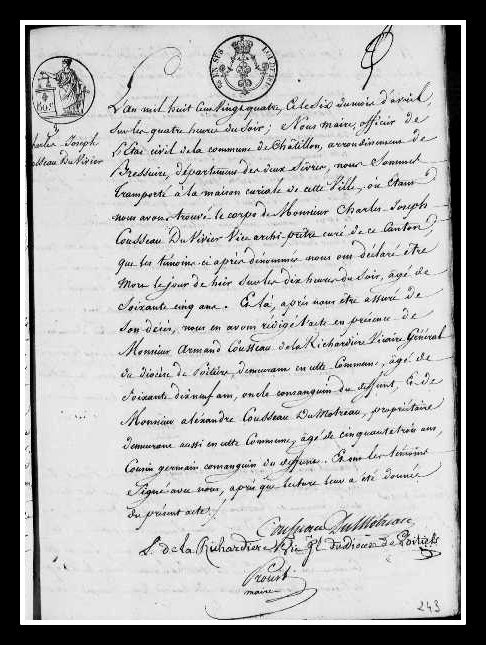 Charles Joseph
Cousseau Du Vivier
L'an mil huit cent vingt quatre, et le six du mois d'avril,
sur les quatre heures du soir; Nous maire, officier de
l'état civil de la commune de Châtillon, arrondissement de
Bressuire, département des deux Sèvres, nous sommes
transporté à la maison curiale de cette Ville, où étant
nous avons trouvé le corps de Monsieur Charles Joseph
Cousseau Du Vivier Vice archi-prêtre curé de ce Canton,
que les témoins ci après dénommés nous ont déclaré être
mort le jour de hier sur les dix heures du soir, âgé de
soixante cinq ans. Et là, après nous être assuré de
son décès, nous en avons rédigé l'acte en présence de
Monsieur Armand Cousseau de la Richardière Vicaire Général
du diocèse de Poitiers, demeurant en cette Commune, âgé de
soixante dix neuf ans, oncle consanguin du deffunt, Et de
Monsieur Alexandre Cousseau Du Motreau, propriétaire
demeurant aussi en cette Commune, âgé de cinquante trois ans,
Cousin germain consanguin du deffunt. Et ont les témoins
signé avec nous, après que lecture leur a été donnée
du présent acte.
Cousseau Du Motreau
de la Richardière Vic. gl. du diocèse de Poitiers
Proust
maire
243